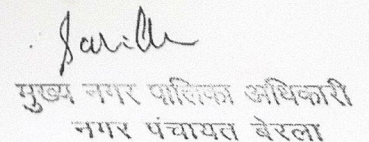 मुख्य नगर पालिका अधिकारी
नगर पंचायत बेरला